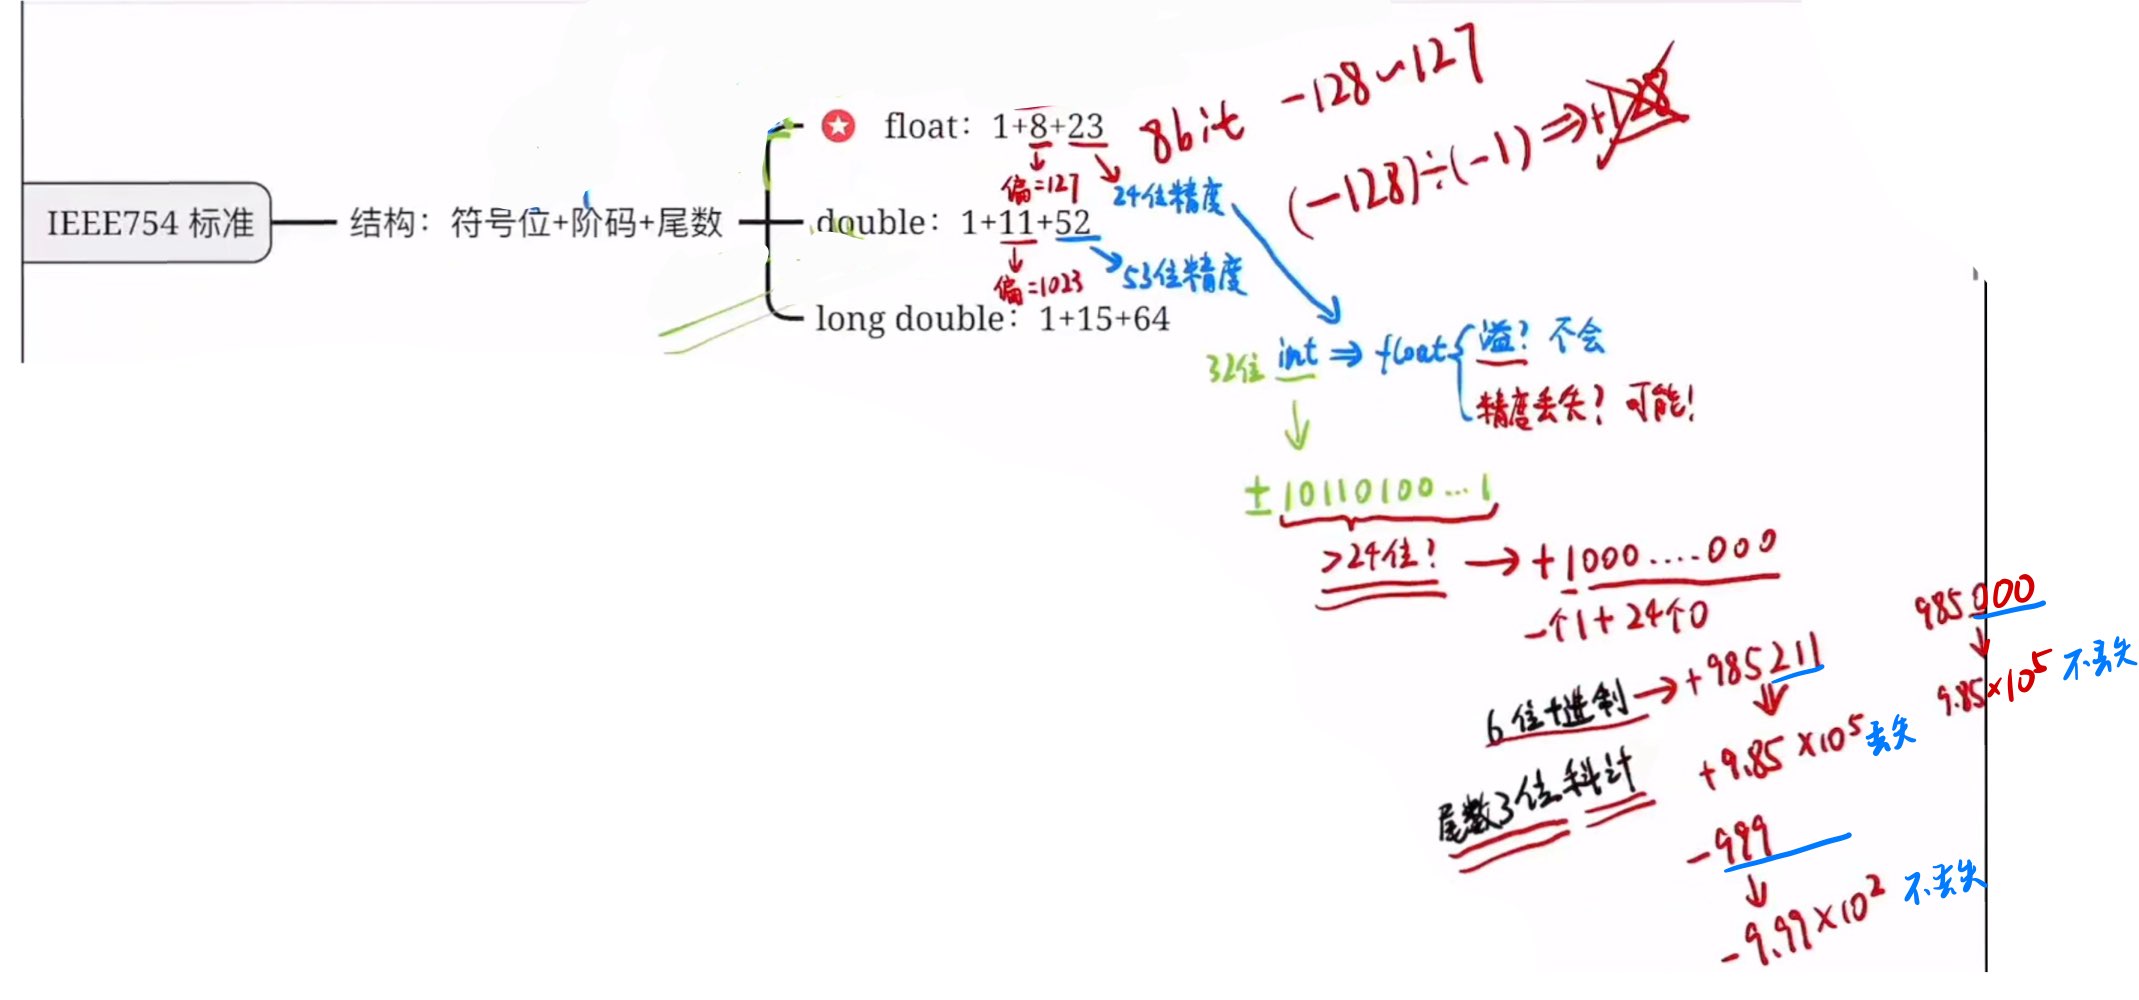 IEEE754 标准
结构：符号位+阶码+尾数
float：1+8+23
偏=127
24位精度
double：1+11+52
偏=1023
53位精度
long double：1+15+64
8bit
-128~127
(-128)÷(-1)⇒+128
32位 int ⇒ float
溢？不会
精度丢失？可能！
±10110100...1
>24位？→+1000....000
一个1+24个0
6位十进制→+985211
+9.85×10⁵丢失
尾数3位科计
-999
-9.99×10² 不丢失
985000
9.85×10⁵ 不丢失